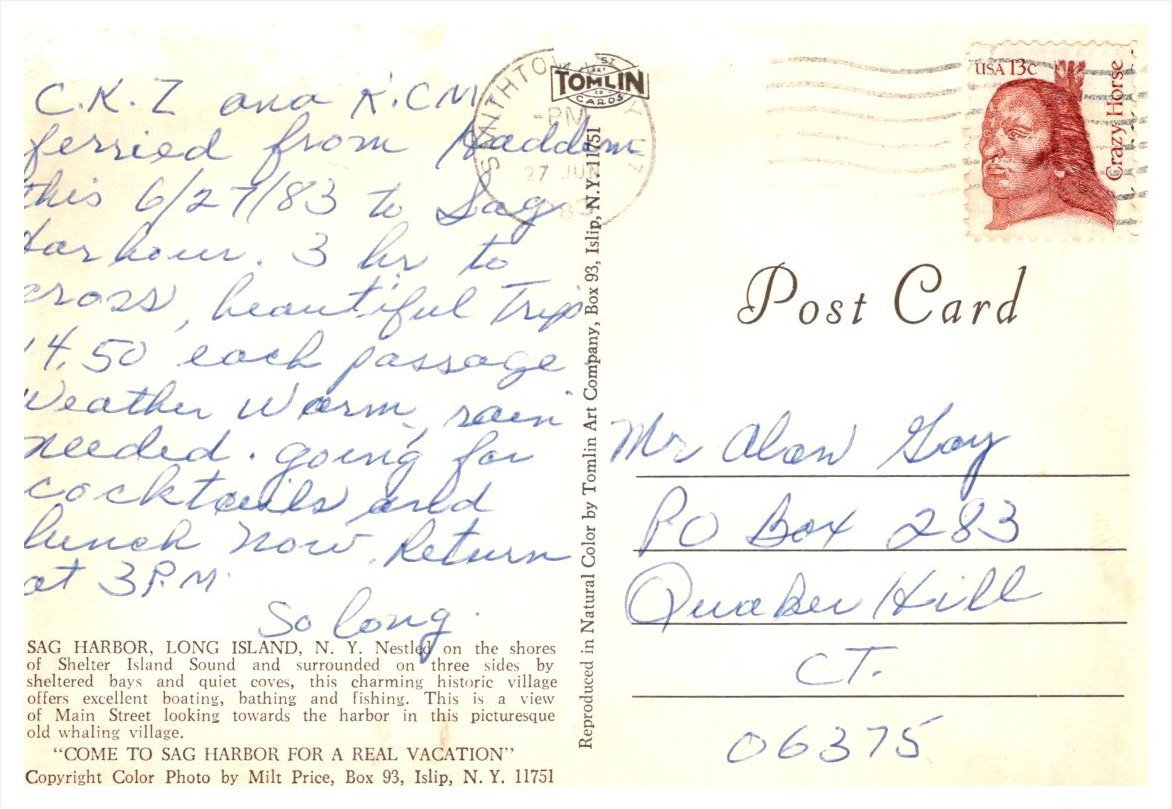 C.K.Z and K.CM
ferried from Haddam
this 6/27/83 to Sag
Harbour. 3 hr to
cross, beautiful Trip
14.50 each passage
Weather Warm, rain
needed. going for
cocktails and
lunch now. Return
at 3 P.M.
So long.
SAG HARBOR, LONG ISLAND, N. Y. Nestled on the shores
of Shelter Island Sound and surrounded on three sides by
sheltered bays and quiet coves, this charming historic village
offers excellent boating, bathing and fishing. This is a view
of Main Street looking towards the harbor in this picturesque
old whaling village.
"COME TO SAG HARBOR FOR A REAL VACATION"
Copyright Color Photo by Milt Price, Box 93, Islip, N. Y. 11751
TOMLIN
CARDS
PM
27 JUN
Reproduced in Natural Color by Tomlin Art Company, Box 93, Islip, N.Y. 11751
USA 13c
Crazy Horse
Post Card
Mr Alan Gay
PO Box 283
Quaker Hill
CT.
06375